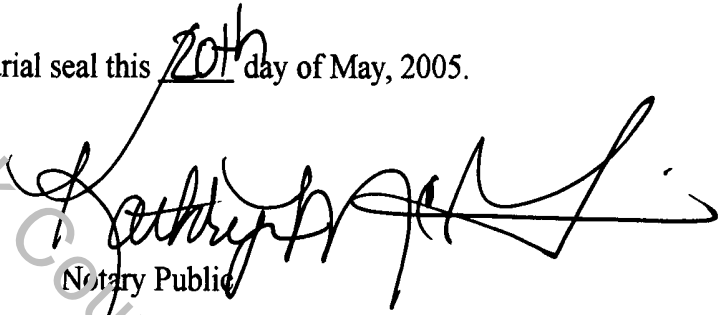 rial seal this 20th day of May, 2005.
Kathryn
Notary Public